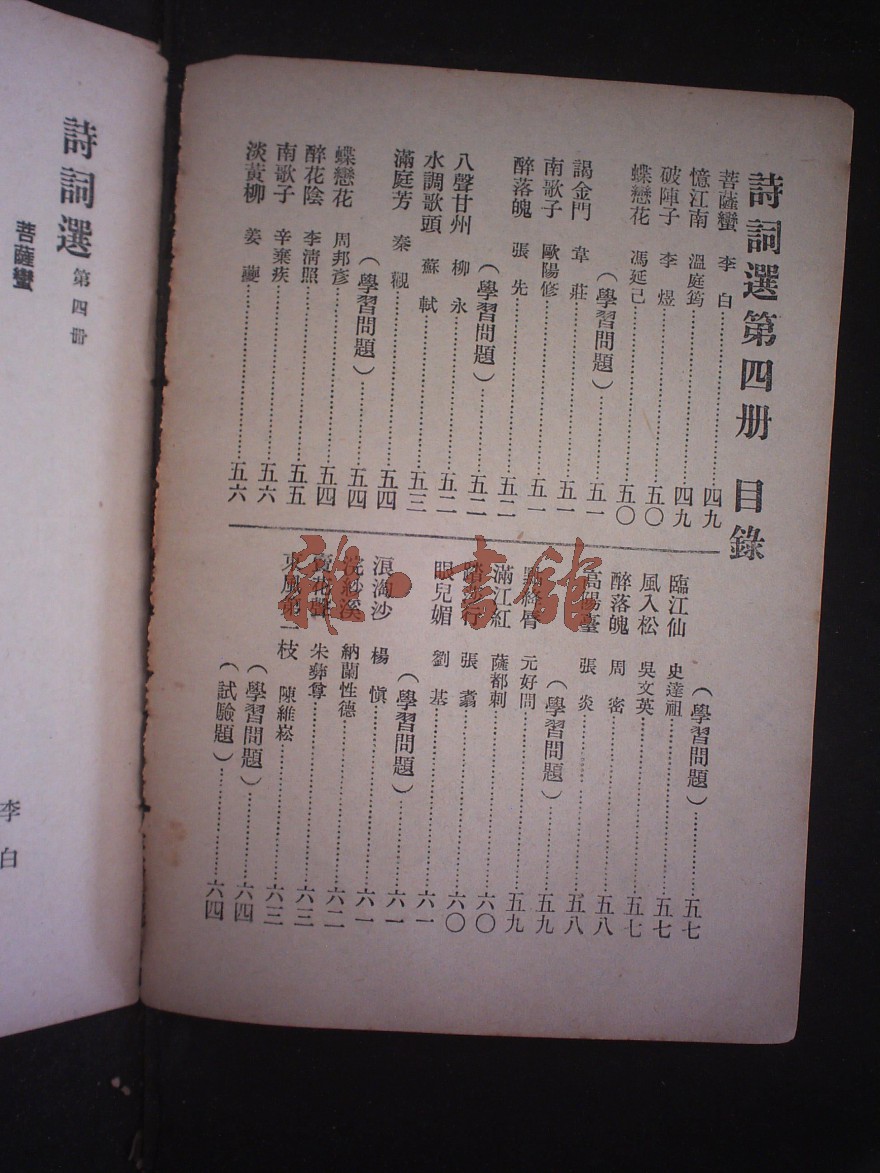 詩詞選第四册 目錄
菩薩蠻 李白……四九
憶江南 溫庭筠……四九
破陣子 李煜……五〇
蝶戀花 馮延己……五〇
（學習問題）……五一
謁金門 韋莊……五一
南歌子 歐陽修……五一
醉落魄 張先……五二
（學習問題）……五二
八聲甘州 柳永……五二
水調歌頭 蘇軾……五三
滿庭芳 秦觀……五四
（學習問題）……五四
蝶戀花 周邦彥……五四
醉花陰 李淸照……五五
南歌子 辛棄疾……五六
淡黃柳 姜夔……五六
（學習問題）……五七
臨江仙 史達祖……五七
風入松 吳文英……五七
醉落魄 周密……五八
高陽臺 張炎……五八
（學習問題）……五九
點絳脣 元好問……五九
滿江紅 薩都刺……六〇
踏莎行 張翥……六〇
眼兒媚 劉基……六一
（學習問題）……六一
浪淘沙 楊愼……六一
浣紗溪 納蘭性德……六二
賣花聲 朱彝尊……六三
東風第一枝 陳維崧……六三
（學習問題）……六四
（試驗題）……六四
詩詞選 第四册
菩薩蠻
李白
雅·書館